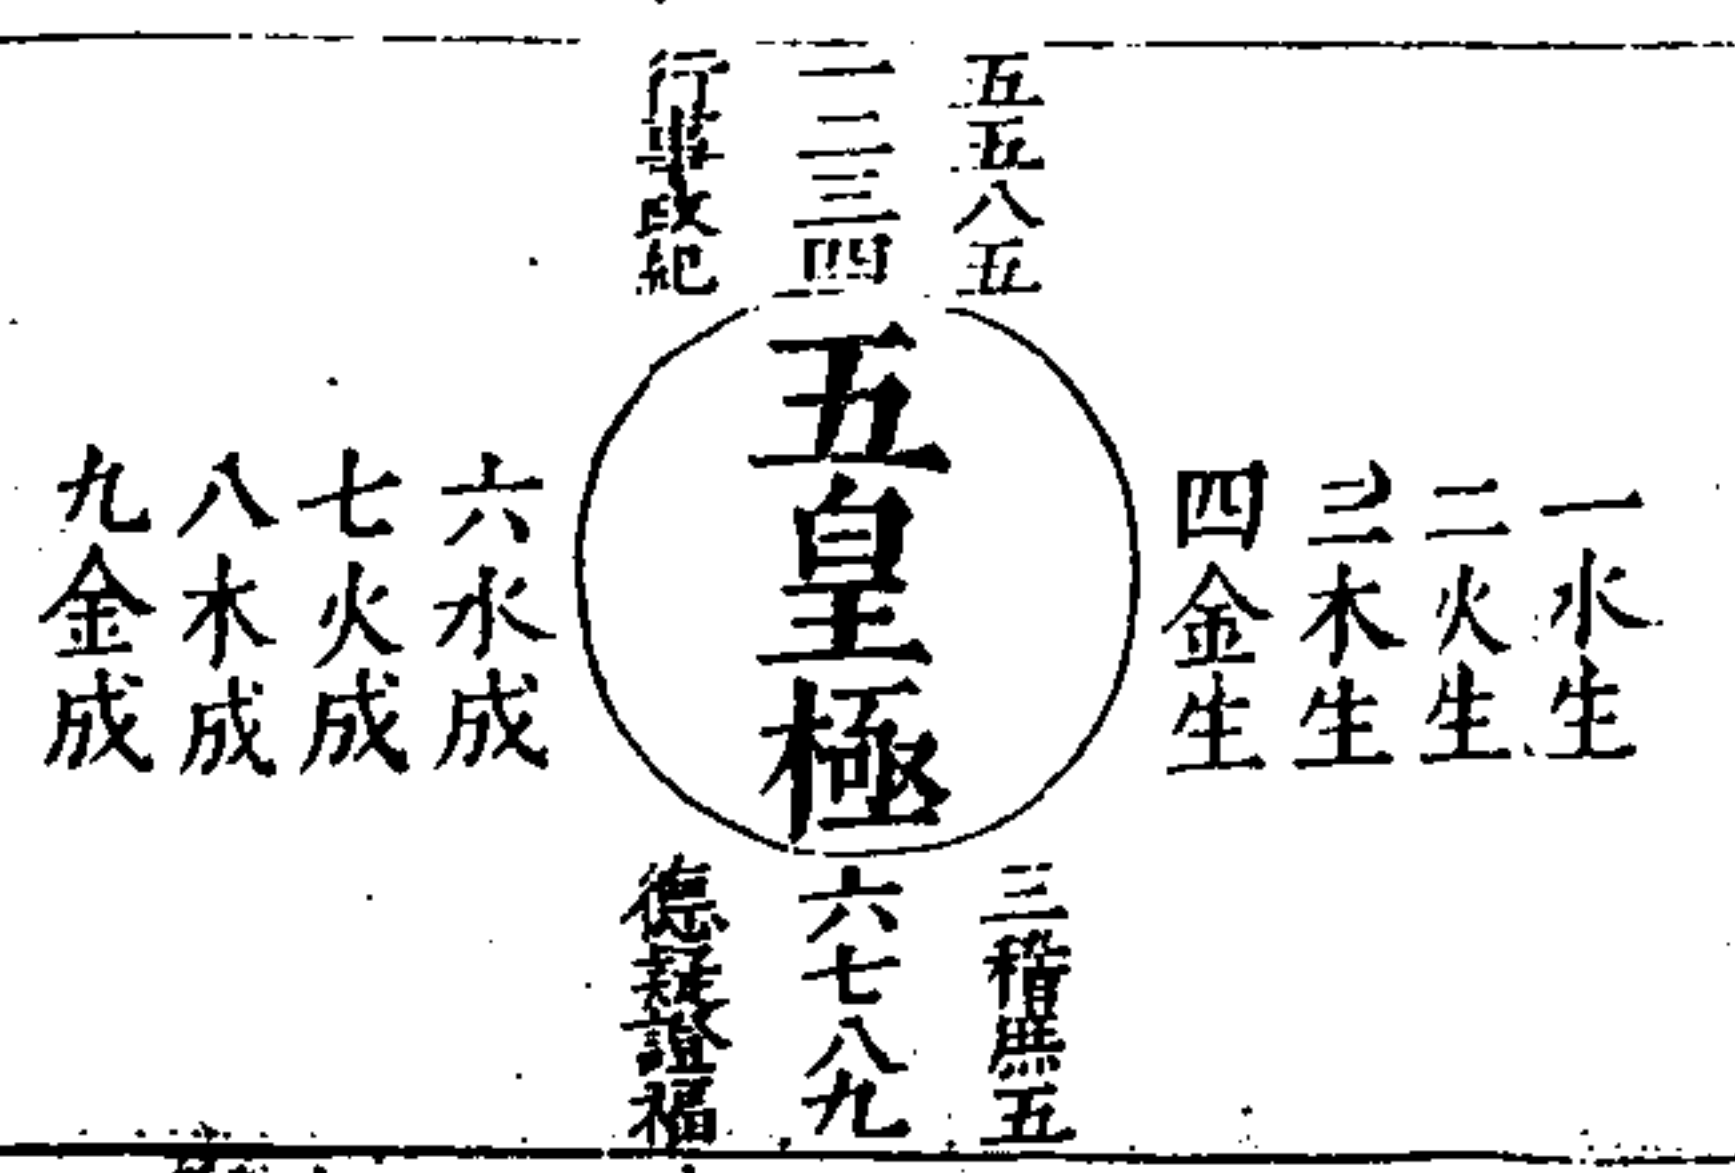 五五八五
一二三四
行事政紀
一水生
二火生
三木生
四金生
五皇極
六水成
七火成
八木成
九金成
三稽庶五
六七八九
德疑證福